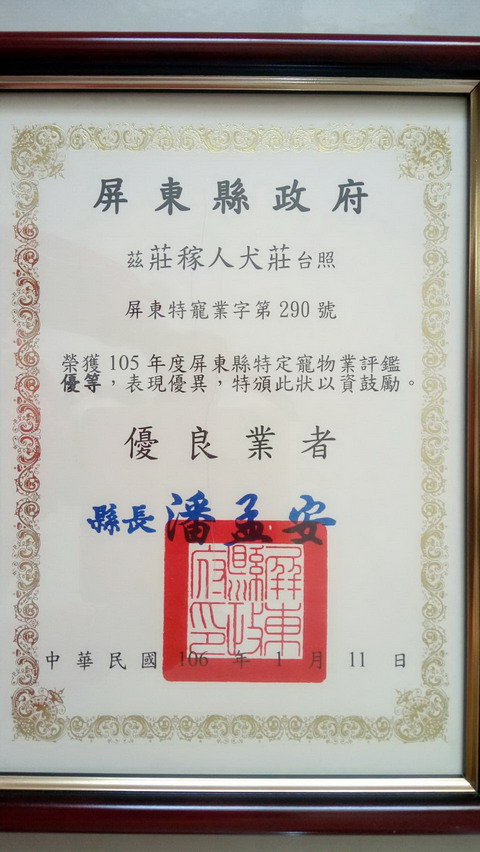 屏東縣政府
茲莊稼人犬莊台照
屏東特寵業字第290號
榮獲105年度屏東縣特定寵物業評鑑
優等，表現優異，特頒此狀以資鼓勵。
優良業者
縣長潘孟安
屏東縣政府印
中華民國106年1月11日